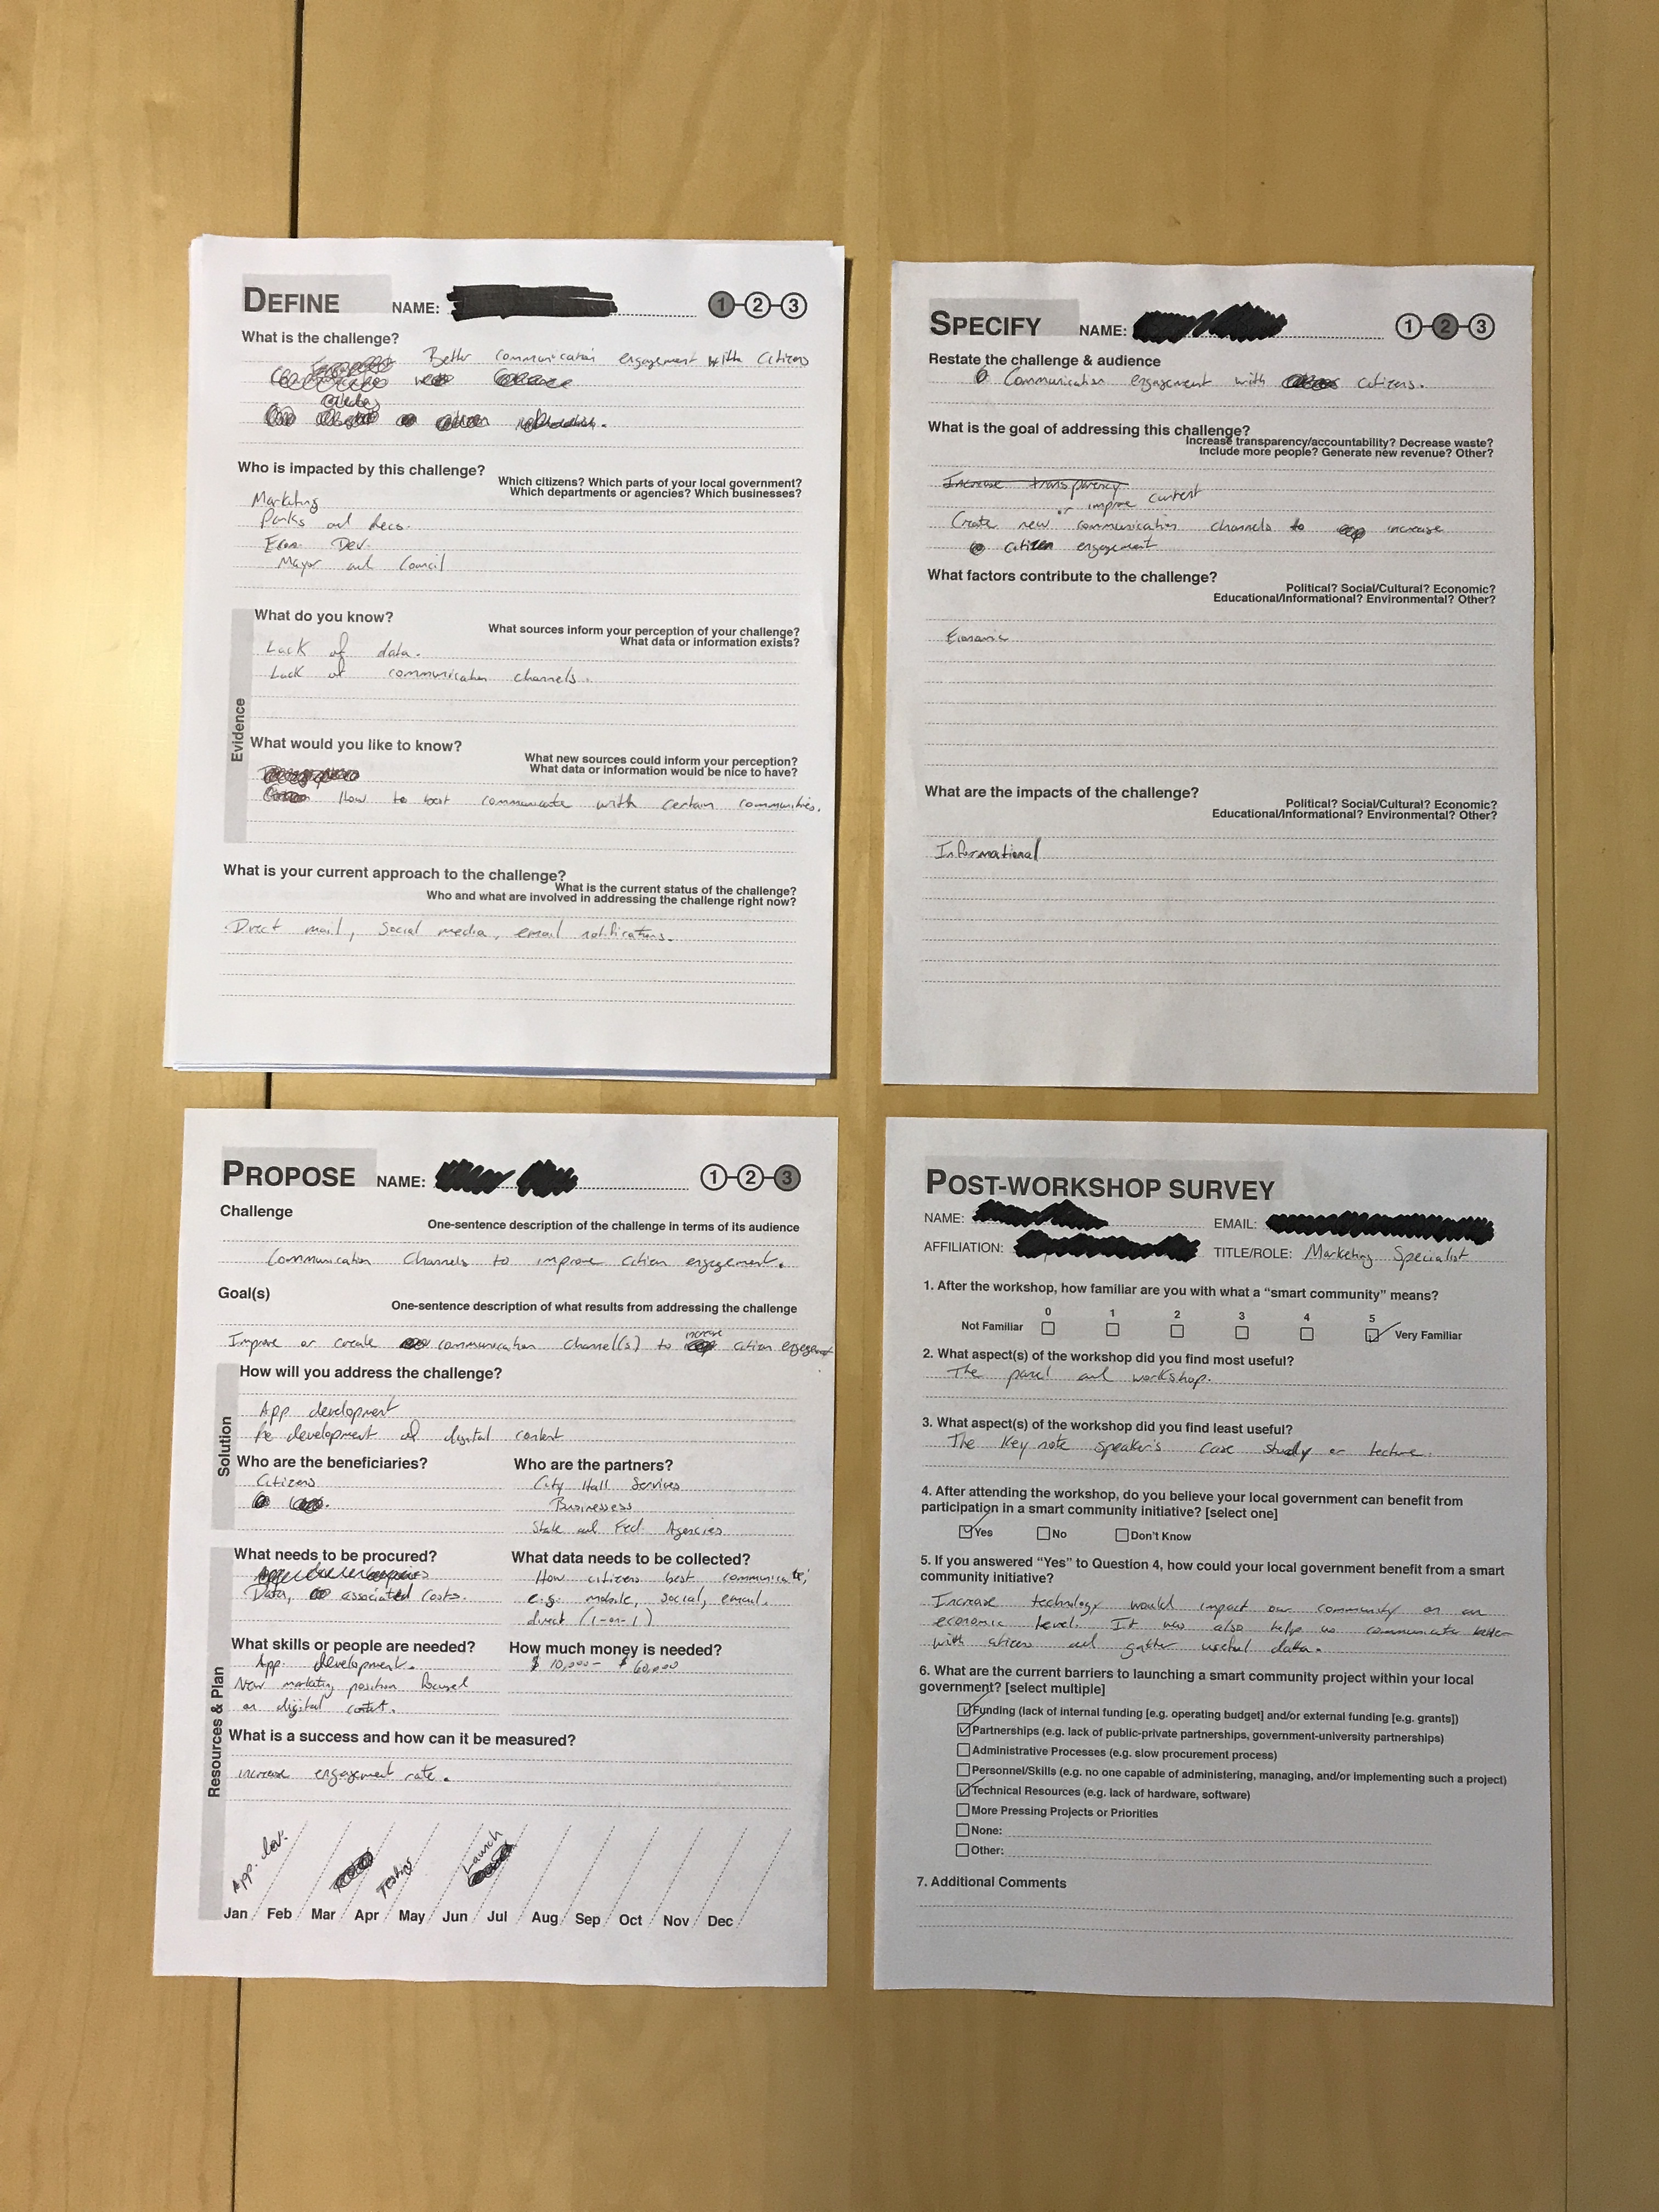 DEFINE NAME: 1 2 3
What is the challenge?
Better communication engagement with citizens
Who is impacted by this challenge?
Which citizens? Which parts of your local government?
Which departments or agencies? Which businesses?
Marketing
Parks and Recs.
Econ. Dev.
Mayor and Council
Evidence
What do you know?
What sources inform your perception of your challenge?
What data or information exists?
Lack of data.
Lack of communication channels.
What would you like to know?
What new sources could inform your perception?
What data or information would be nice to have?
How to best communicate with certain communities.
What is your current approach to the challenge?
What is the current status of the challenge?
Who and what are involved in addressing the challenge right now?
Direct mail, Social media, email notifications.
SPECIFY NAME: 1 2 3
Restate the challenge & audience
Communication engagement with citizens.
What is the goal of addressing this challenge?
Increase transparency/accountability? Decrease waste?
Include more people? Generate new revenue? Other?
Increase transparency
or improve current
Create new communication channels to increase
citizen engagement
What factors contribute to the challenge?
Political? Social/Cultural? Economic?
Educational/Informational? Environmental? Other?
Economic
What are the impacts of the challenge?
Political? Social/Cultural? Economic?
Educational/Informational? Environmental? Other?
Informational
PROPOSE NAME: 1 2 3
Challenge
One-sentence description of the challenge in terms of its audience
Communication Channels to improve citizen engagement.
Goal(s)
One-sentence description of what results from addressing the challenge
increase
Improve or create communication channel(s) to citizen engagement
Solution
How will you address the challenge?
App development
Re development of digital content
Who are the beneficiaries?
Citizens
Who are the partners?
City Hall Services
Businessess
State and Fed. Agencies
Resources & Plan
What needs to be procured?
Data, associated costs.
What data needs to be collected?
How citizens best communicate;
e.g. mobile, social, email,
direct (1-on-1)
What skills or people are needed?
App. development.
New marketing position focused
on digital content.
How much money is needed?
$ 10,000 - $ 60,000
What is a success and how can it be measured?
increase engagement rate.
App. dev.
Testing
Launch
Jan Feb Mar Apr May Jun Jul Aug Sep Oct Nov Dec
POST-WORKSHOP SURVEY
NAME: EMAIL:
AFFILIATION: TITLE/ROLE: Marketing Specialist
1. After the workshop, how familiar are you with what a “smart community” means?
0 1 2 3 4 5
Not Familiar Very Familiar
2. What aspect(s) of the workshop did you find most useful?
The panel and workshop.
3. What aspect(s) of the workshop did you find least useful?
The Key note speaker's case study or lecture.
4. After attending the workshop, do you believe your local government can benefit from
participation in a smart community initiative? [select one]
Yes No Don't Know
5. If you answered “Yes” to Question 4, how could your local government benefit from a smart
community initiative?
Increase technology would impact our community on an
economic level. It also help us communicate better
with citizens and gather useful data.
6. What are the current barriers to launching a smart community project within your local
government? [select multiple]
Funding (lack of internal funding [e.g. operating budget] and/or external funding [e.g. grants])
Partnerships (e.g. lack of public-private partnerships, government-university partnerships)
Administrative Processes (e.g. slow procurement process)
Personnel/Skills (e.g. no one capable of administering, managing, and/or implementing such a project)
Technical Resources (e.g. lack of hardware, software)
More Pressing Projects or Priorities
None:
Other:
7. Additional Comments